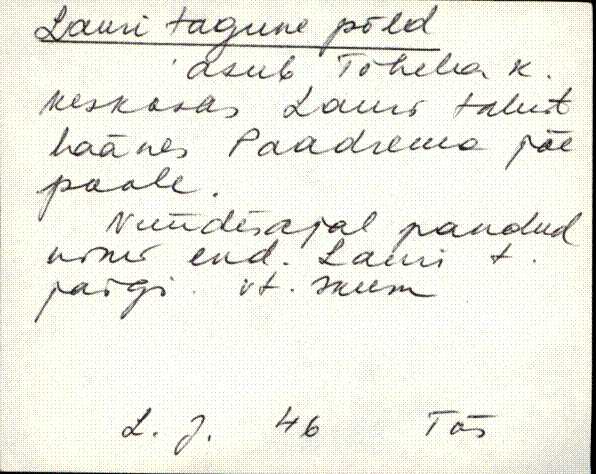 Lauri tagune põld
asub Tõhela k.
keskosas Lauri talust
läänes Paadrema jõe
poole.
Nüüdisajal pandud
nimi end. Lauri t.
järgi. vt. skeem
L. J. 46 Tõs